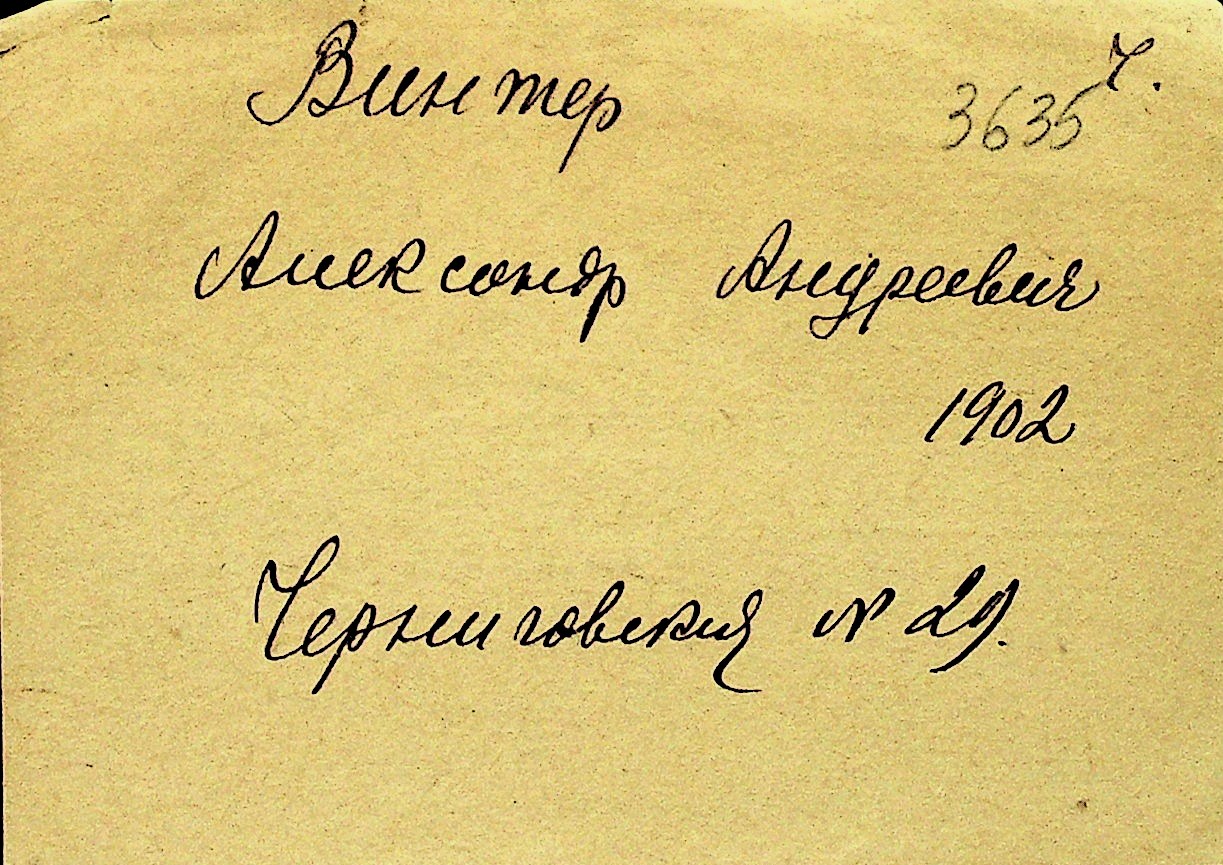 Винтер
ч.
3635
Александр Андреевич
1902
Черниговская № 29.